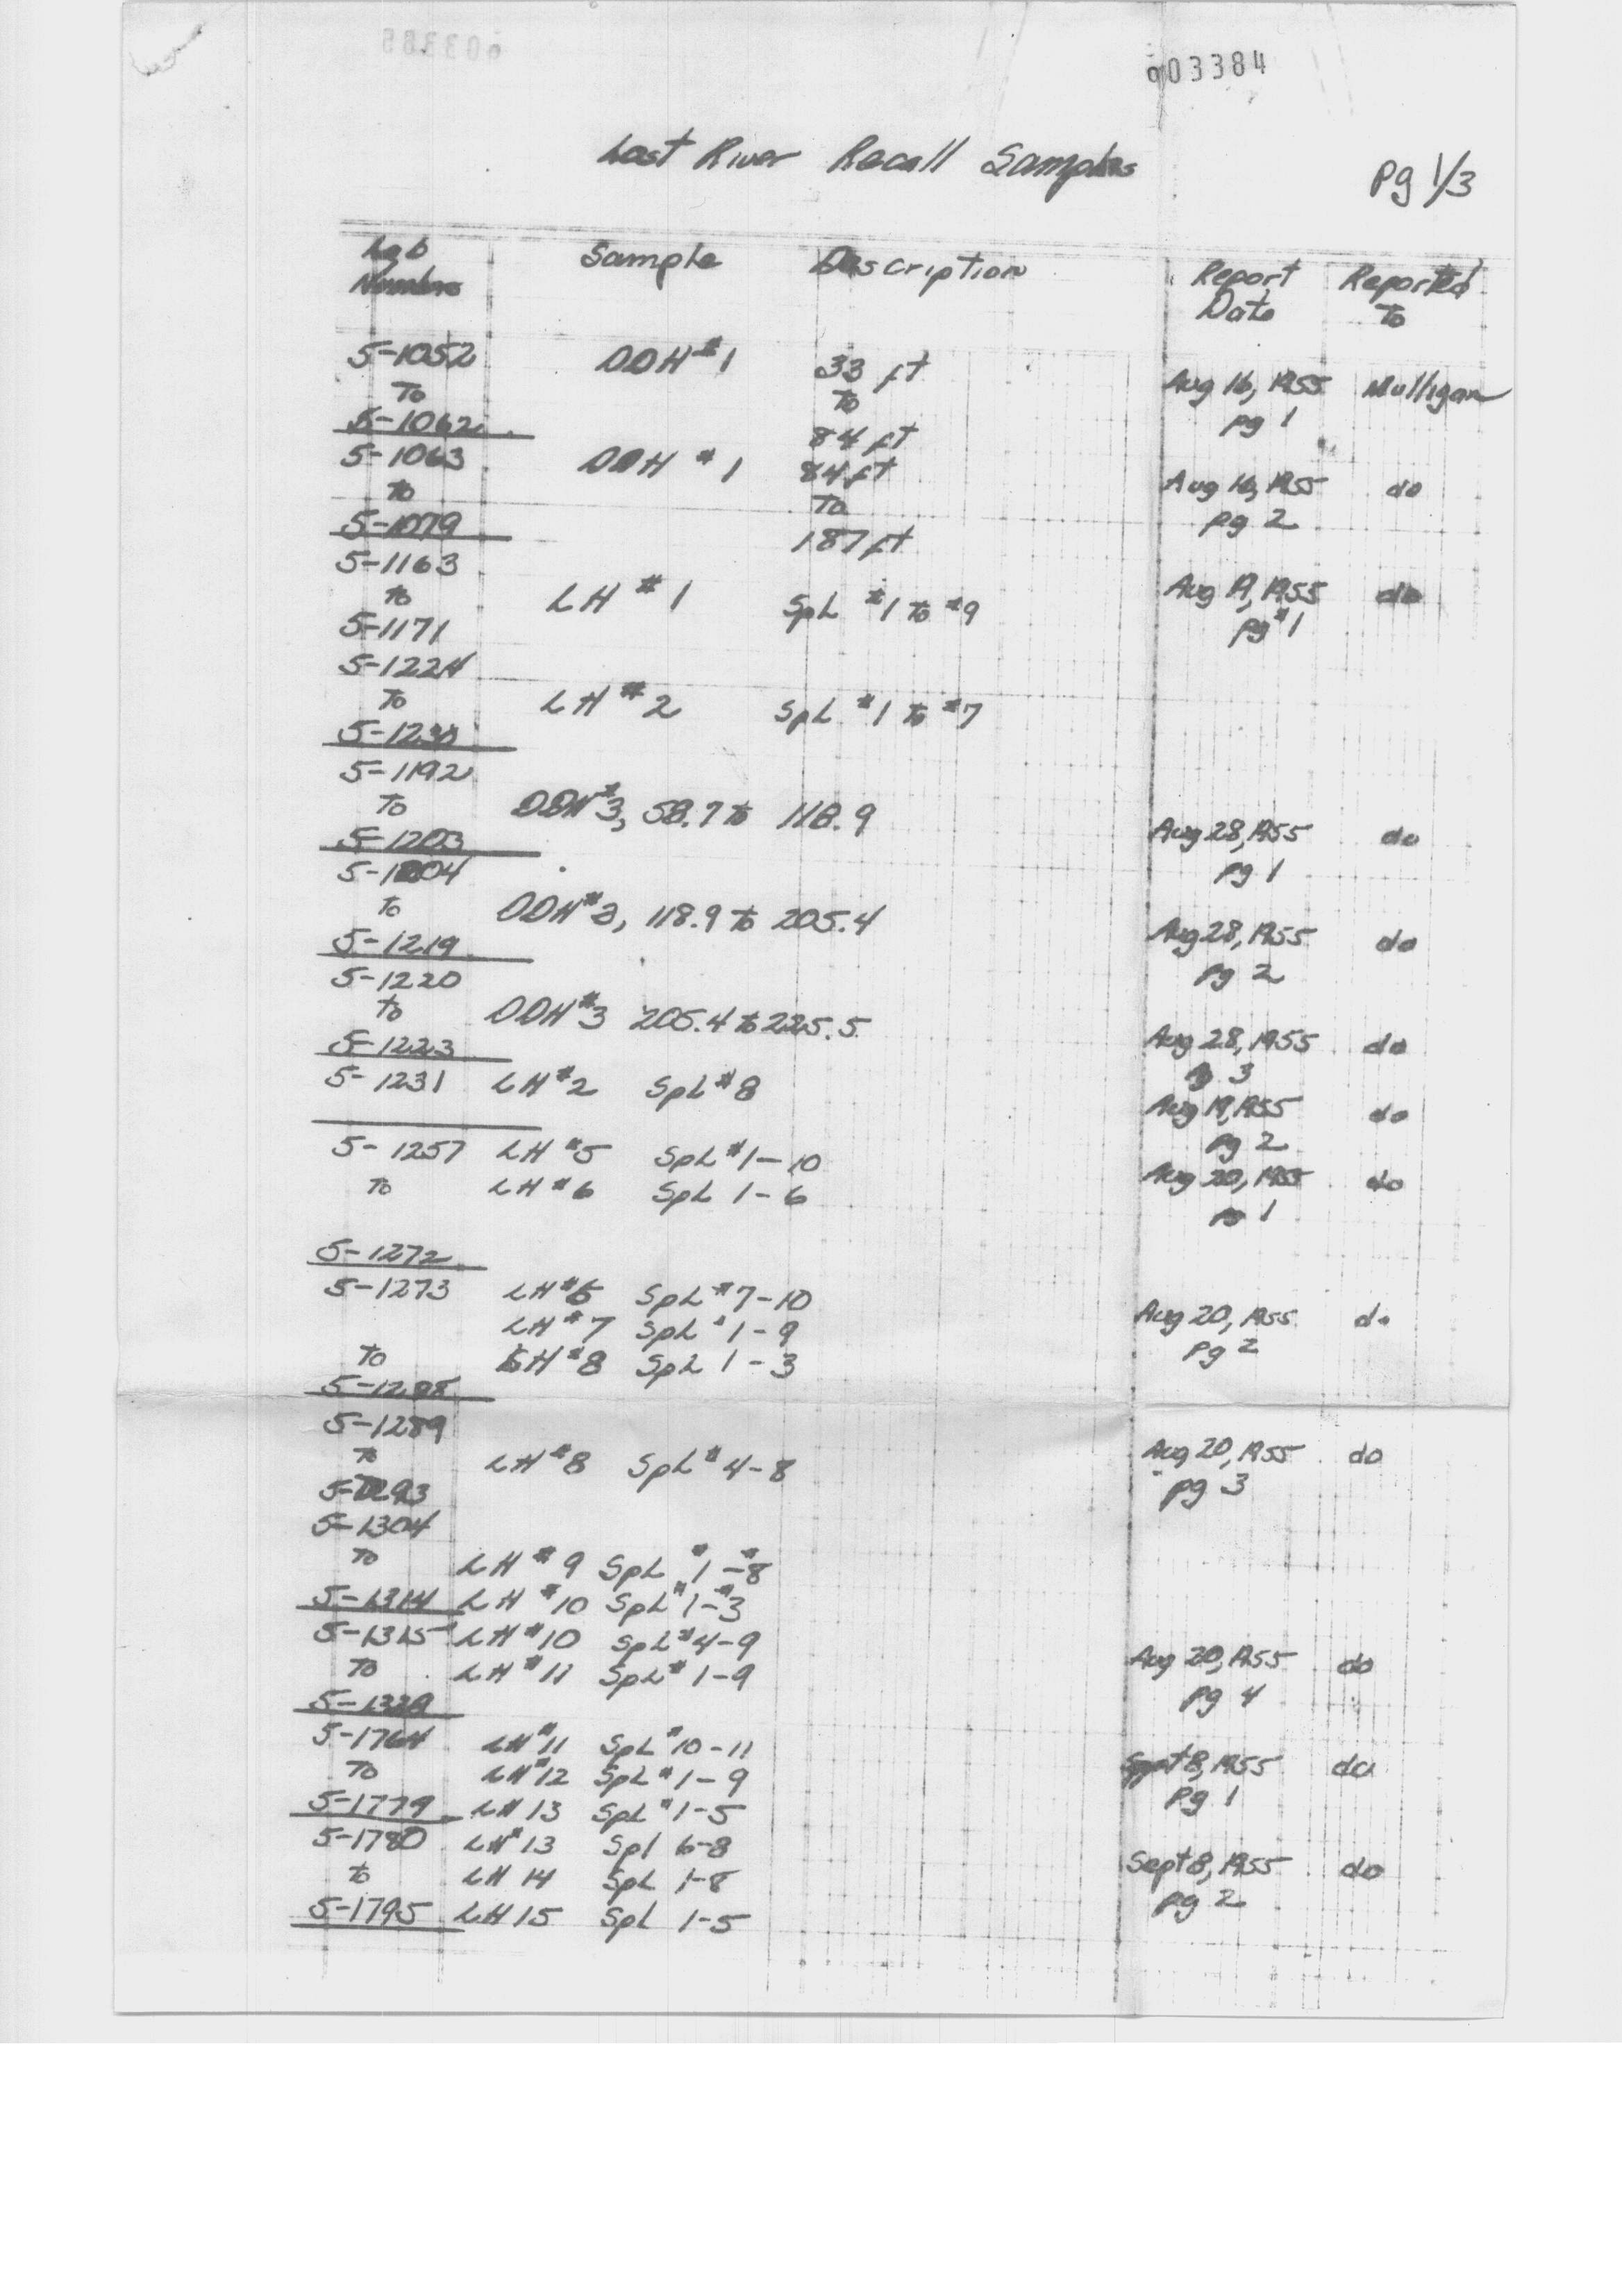 003384
Lost River Recall Samples
pg 1/3
Lab Number Sample Description Report Date Reported To
5-1052 DDH #1 33 ft
To To Aug 16, 1955 Mulligan
5-1062 84 ft pg 1
5-1063 DDH #1 84 ft
to To Aug 16, 1955 do
5-1079 187 ft pg 2
5-1163
to LH #1 SpL #1 to #9 Aug 19, 1955 do
5-1171 pg #1
5-1224
To LH #2 SpL #1 to #7
5-1230
5-1192
To DDH #3, 58.7 to 118.9 Aug 28, 1955 do
5-1203 pg 1
5-1204
to DDH #3, 118.9 to 205.4 Aug 28, 1955 do
5-1219 pg 2
5-1220
to DDH #3 205.4 to 225.5 Aug 28, 1955 do
5-1223 pg 3
5-1231 LH #2 SpL #8 Aug 19, 1955 do
pg 2
5-1257 LH #5 SpL #1-10 Aug 20, 1955 do
To LH #6 SpL 1-6 pg 1
5-1272
5-1273 LH #6 SpL #7-10
LH #7 SpL #1-9 Aug 20, 1955 do
To LH #8 SpL 1-3 pg 2
5-1288
5-1289
To LH #8 SpL #4-8 Aug 20, 1955 do
5-1293 pg 3
5-1304
To LH #9 SpL #1-#8
5-1314 LH #10 SpL #1-#3
5-1315 LH #10 SpL #4-9 Aug 20, 1955 do
To LH #11 SpL #1-9 pg 4
5-1329
5-1764 LH #11 SpL #10-11
To LH #12 SpL #1-9 Sept 8, 1955 do
5-1779 LH 13 SpL #1-5 pg 1
5-1780 LH #13 Spl 6-8
to LH 14 SpL 1-8 Sept 8, 1955 do
5-1795 LH 15 SpL 1-5 pg 2